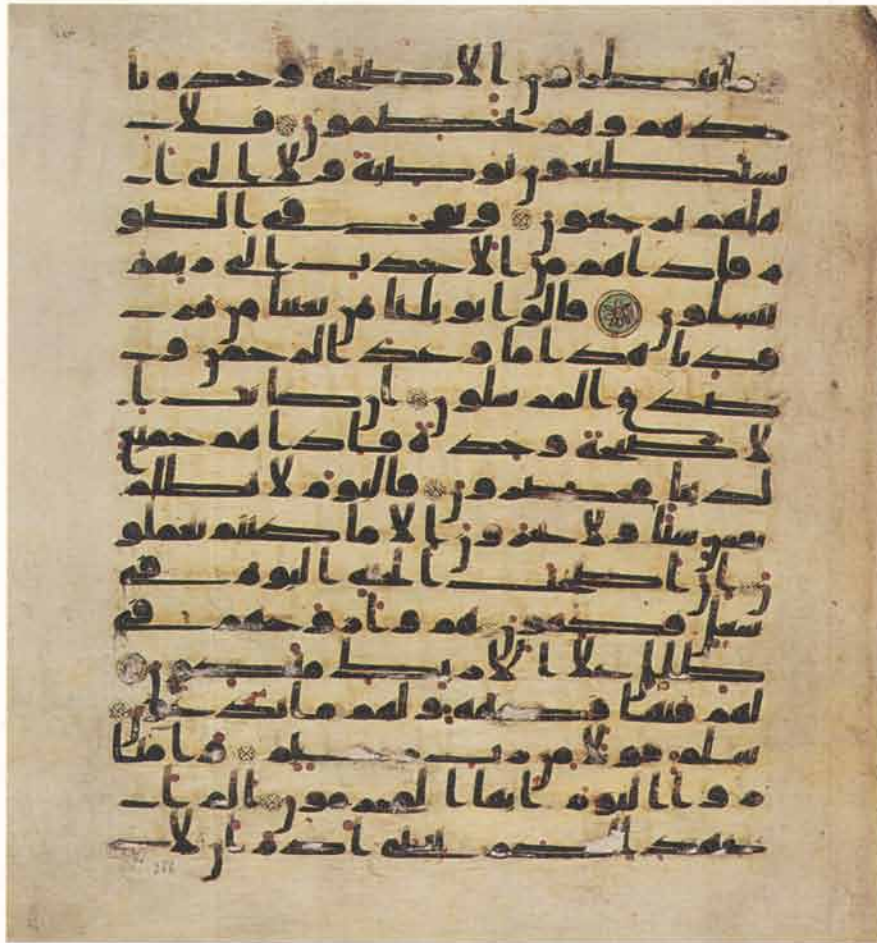 ما ينظرون الا صيحة وحدة تا
خذهم وهم يخصمون فلا
يستطيعون توصية ولا الى ا
هلهم يرجعون ونفخ في الصو
ر فاذا هم من الاجدث الى ربهم
ينسلون قالوا يويلنا من بعثنا من مر
قدنا هذا ما وعد الرحمن و
صدق المرسلون ان كانت ا
لا صيحة وحدة فاذا هم جميع
لدينا محضرون فاليوم لا تظلم
نفس شيا ولا تجزون الا ما كنتم تعملو
ن ان اصحب الجنة اليوم في
شغل فكهون هم وازوجهم في
ظلل على الارايك متكون
لهم فيها فكهة ولهم ما يدعون
سلم قولا من رب رحيم وامتا
زوا اليوم ايها المجرمون الم ا
عهد اليكم يبني ادم ان لا